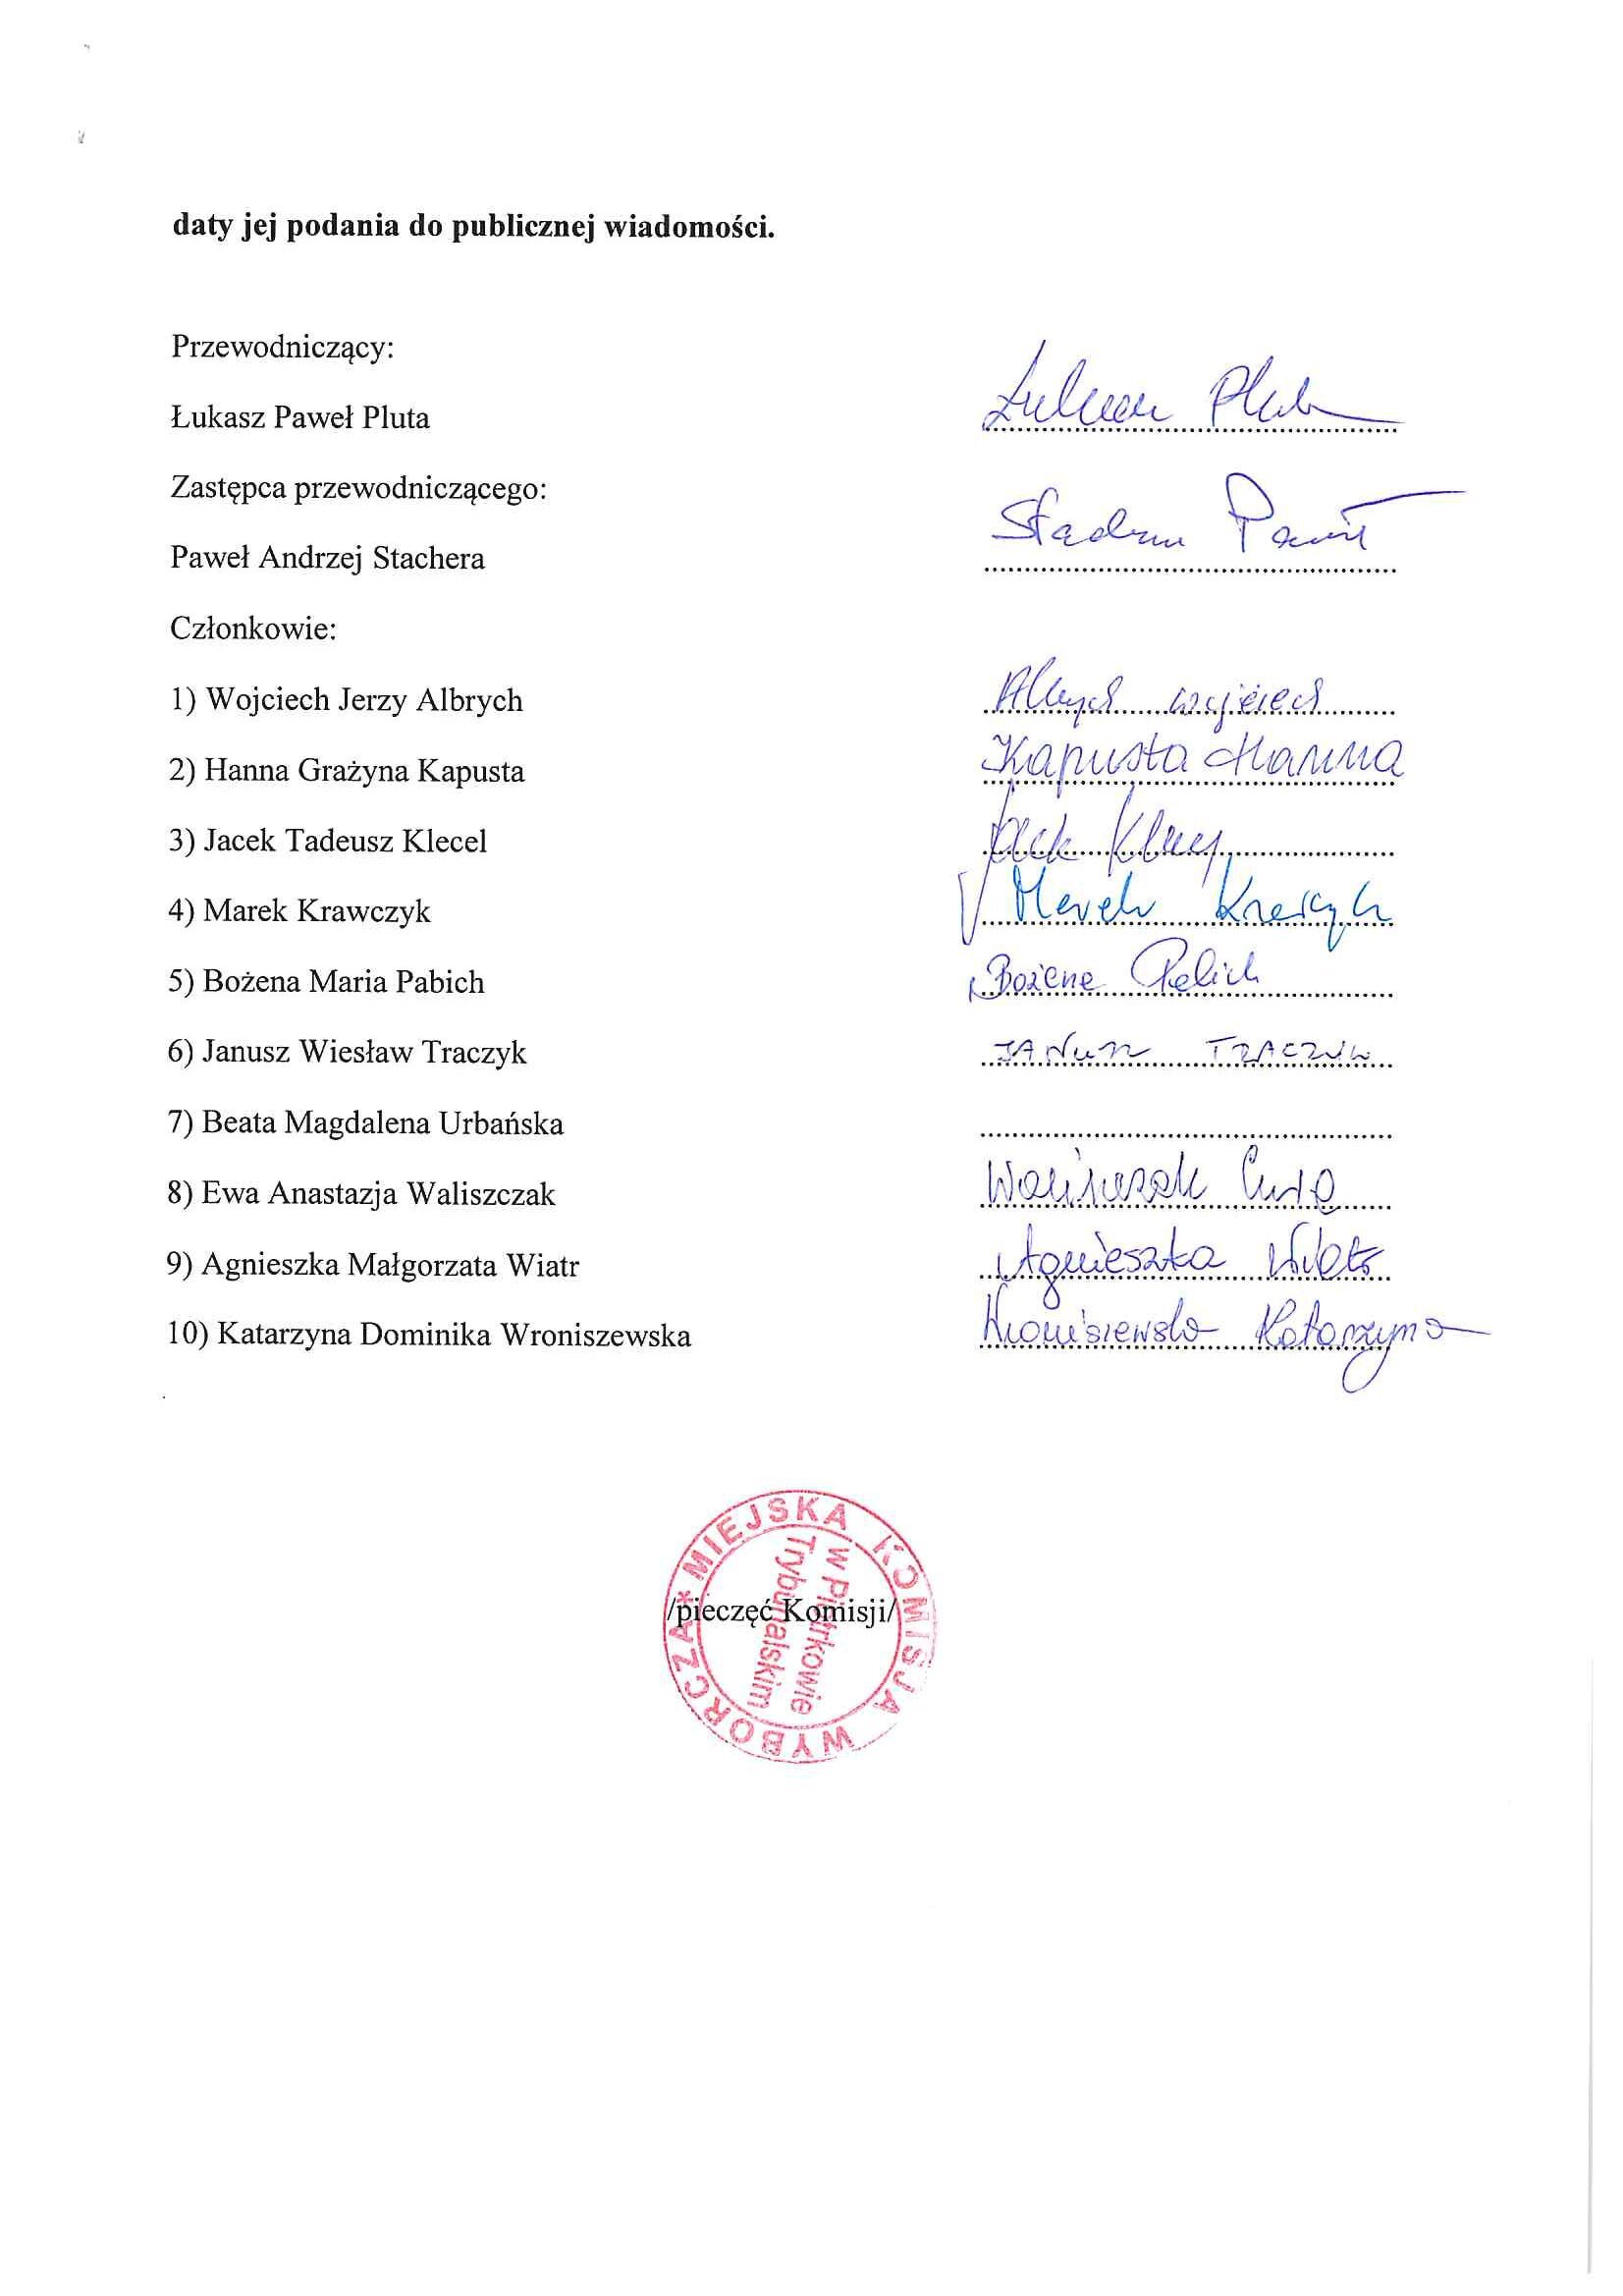 daty jej podania do publicznej wiadomości.
Przewodniczący:
Łukasz Paweł Pluta
Zastępca przewodniczącego:
Paweł Andrzej Stachera
Paweł
Członkowie:
1) Wojciech Jerzy Albrych Albrych Wojciech
2) Hanna Grażyna Kapusta Kapusta Hanna
3) Jacek Tadeusz Klecel Jacek
4) Marek Krawczyk Marek Krawczyk
5) Bożena Maria Pabich Bożena Pabich
6) Janusz Wiesław Traczyk JANUSZ TRACZYK
7) Beata Magdalena Urbańska
8) Ewa Anastazja Waliszczak Waliszczak Ewa
9) Agnieszka Małgorzata Wiatr Agnieszka Wiatr
10) Katarzyna Dominika Wroniszewska Wroniszewska Katarzyna
/pieczęć Komisji/
* MIEJSKA KOMISJA WYBORCZA
w Piotrkowie
Trybunalskim